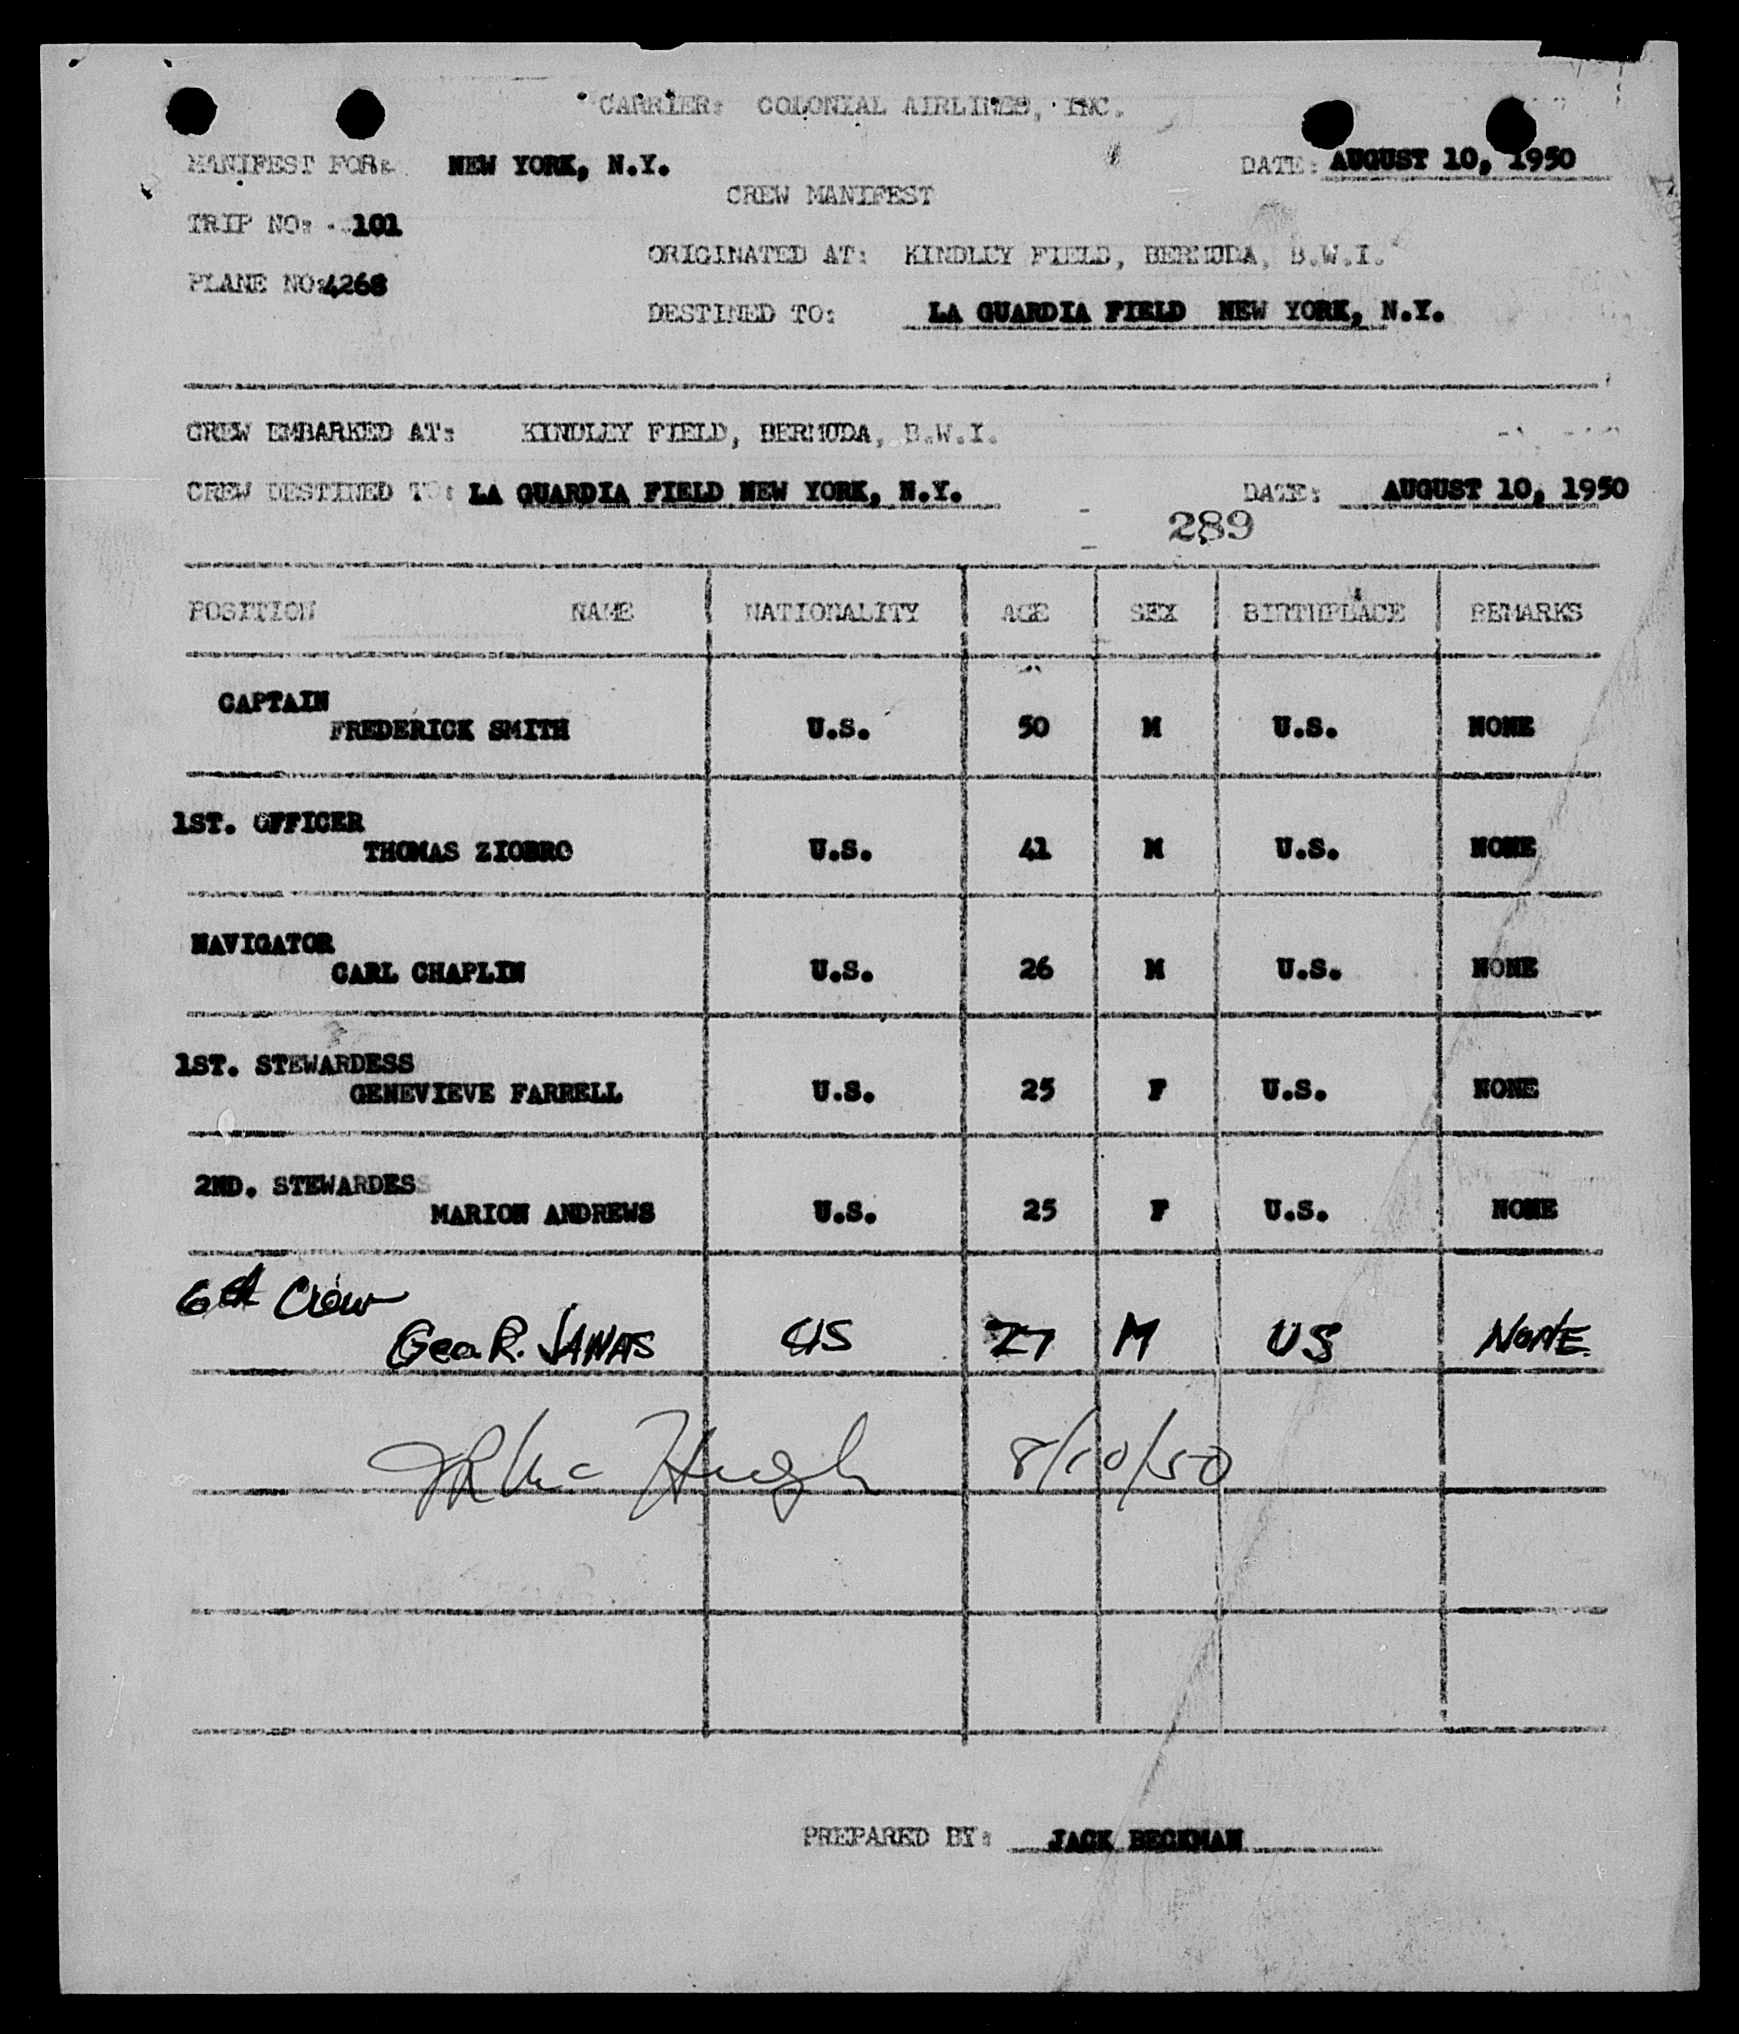 CARRIER: COLONIAL AIRLINES, INC.
MANIFEST FOR: NEW YORK, N.Y. DATE: AUGUST 10, 1950
CREW MANIFEST
TRIP NO: 101
ORIGINATED AT: KINDLEY FIELD, BERMUDA, B.W.I.
PLANE NO: 4268
DESTINED TO: LA GUARDIA FIELD NEW YORK, N.Y.
CREW EMBARKED AT: KINDLEY FIELD, BERMUDA, B.W.I.
CREW DESTINED TO: LA GUARDIA FIELD NEW YORK, N.Y. DATE: AUGUST 10, 1950
289
POSITION NAME NATIONALITY AGE SEX BIRTHPLACE REMARKS
CAPTAIN
FREDERICK SMITH U.S. 50 M U.S. NONE
1ST. OFFICER
THOMAS ZIOBRO U.S. 41 M U.S. NONE
NAVIGATOR
CARL CHAPLIN U.S. 26 M U.S. NONE
1ST. STEWARDESS
GENEVIEVE FARRELL U.S. 25 F U.S. NONE
2ND. STEWARDESS
MARION ANDREWS U.S. 25 F U.S. NONE
Crew
Geo R. JANAS US 27 M US NONE
Hugh 8/10/50
PREPARED BY: JACK BECKMAN